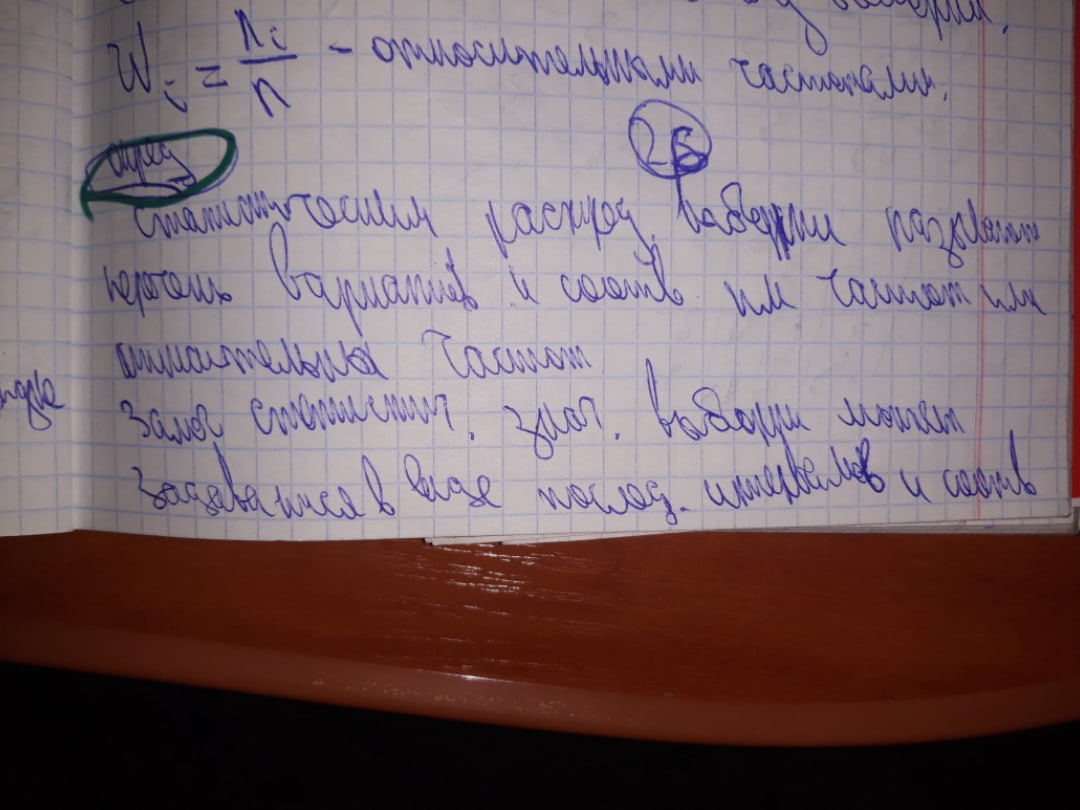 выборки.
W_i = n_i/n - относительными частотами.
опред
26
Статистическим распред. выборки называют
перечень вариантов и соотв им частот или
относительных частот
статистич. знач. выборки может
задаваться в виде послед. интервалов и соотв